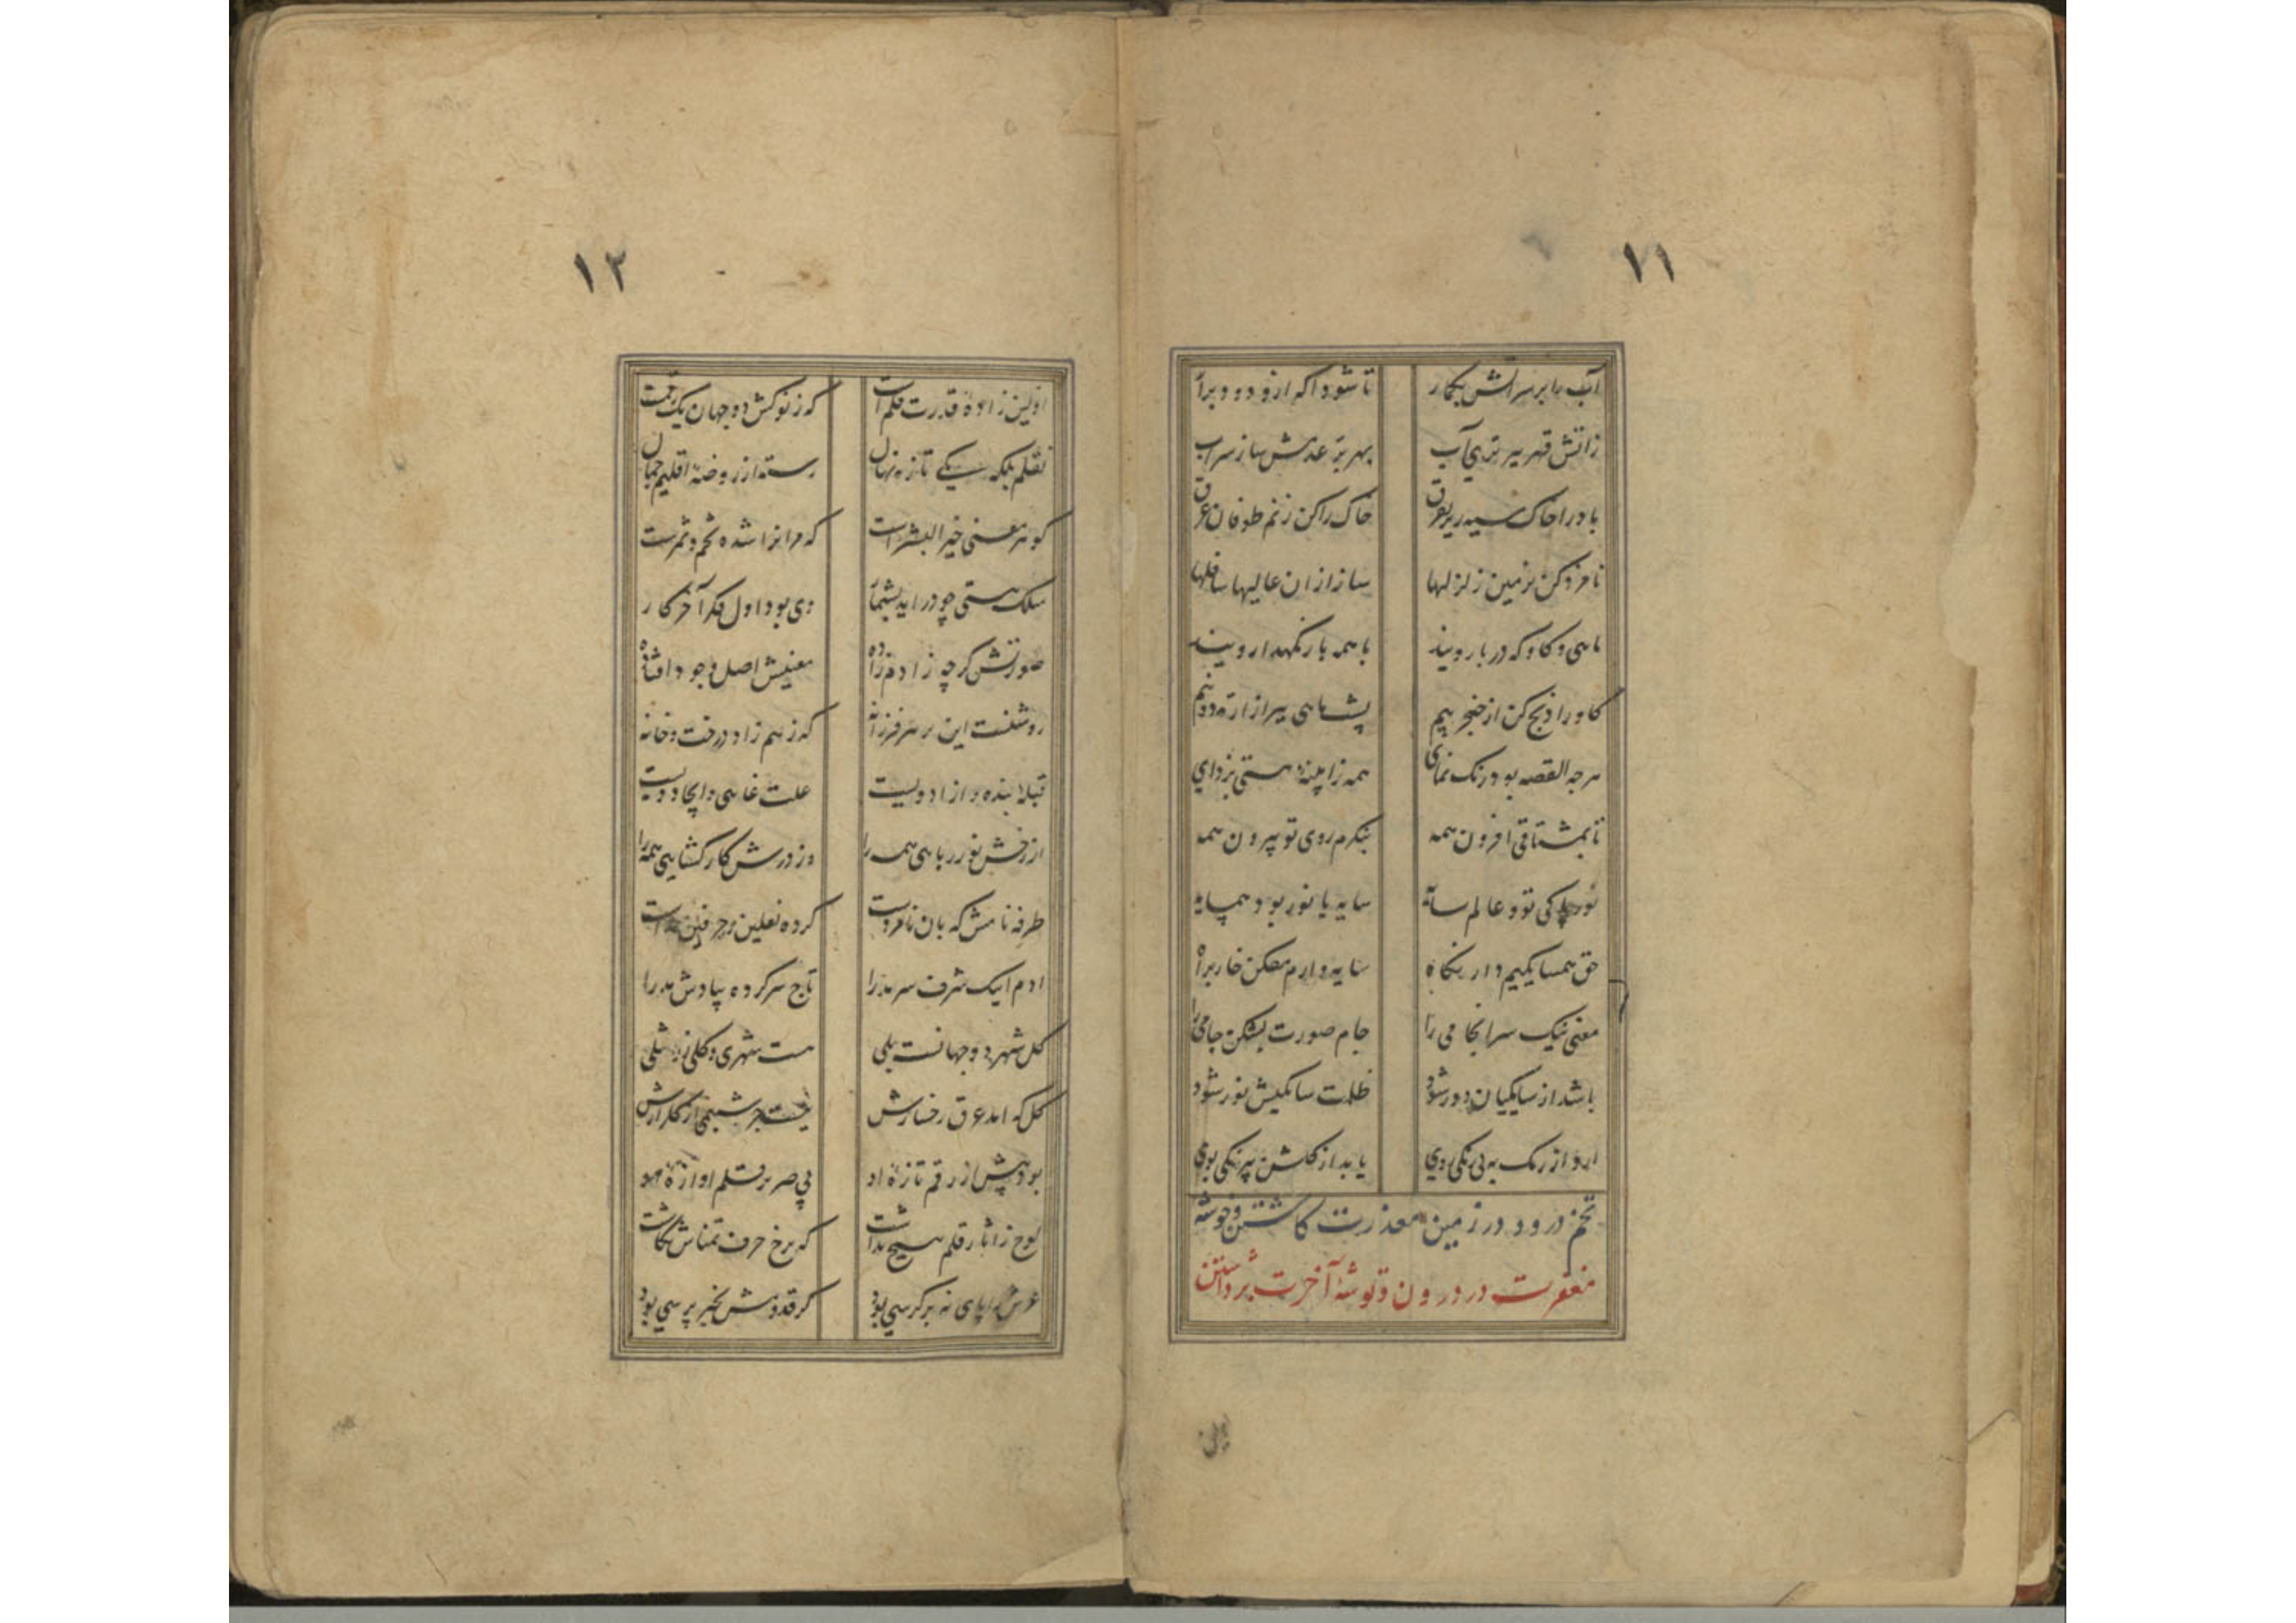 ۱۱
آب را بر سر آتش بگمار تا شود آگه ازو دود برآر
ز آتش قهر ببر تری آب بهر بد عهدش ساز سراب
باد را خاک سیه ریز بفرق خاک را کن ز نم طوفان غرق
نامزد کن بزمین زلزلها ساز از آن عالیها سافلها
ماهی و گاو که در بار ویند با همه بار نگهدار ویند
گاو را ذبح کن از خنجر بیم پشت ماهی ببر از اره دو نیم
هر چه القصه بود رنگ نمای همه ز آیینه هستی بزدای
تا بمشتاقی افزون همه بنگرم روی تو بیرون همه
نور پاکی تو و عالم سایه سایه با نور بود همپایه
حق همسایگیم دار نگاه سایه وارم مفکن خار براه
معنی نیک سرانجامی را جام صورت بشکن جامی را
باشد از سایگیان دور شود ظلمت سایگیش نور شود
آرد از رنگ به بی رنگی روی یابد از گلشن بیرنگی بوی
تخم درود در زمین معذرت کاشتن و خوشه
مغفرت درودن و توشه آخرت برداشتن
اولین
۱۲
اولین زاده قدرت قلم است که ز نوکش دو جهان یک رقمست
نه قلم بلکه یکی تازه نهال رسته از روضه اقلیم جمال
گوهر معنی خیر البشر است که مر انرا شده تخم و ثمرست
سلک هستی چو درآید بشمار وی بود اول فکر آخر کار
صورتش گر چه ز آدم زاده معنیش اصل وجود افتاده
روشنست این بر هر فرزانه که ز هم زاد درخت و دانه
قبله بنده و آزاد ویست علت غائی و ایجاد ویست
از رخش نور ربایی همه را وز درش کار گشایی همه را
طرفه نامش که بان نامورست کرده نعلین ز حرفین
آدم اینک شرف سرمد را تاج سر کرده ز پا دش مد را
گل شهر دو جهانست بلی هست شهری و گلی زو مثلی
گل که آمد عرق رخسارش نیست جز شبنمی از گلزارش
بود پیش از رقم تازه او بی صریر قلم آوازه او
لوح ز آثار قلم هیچ نداشت که برخ حرف تمناش نگاشت
عرش را پای نه بر کرسی بود کز قدومش بخبر پرسی بود